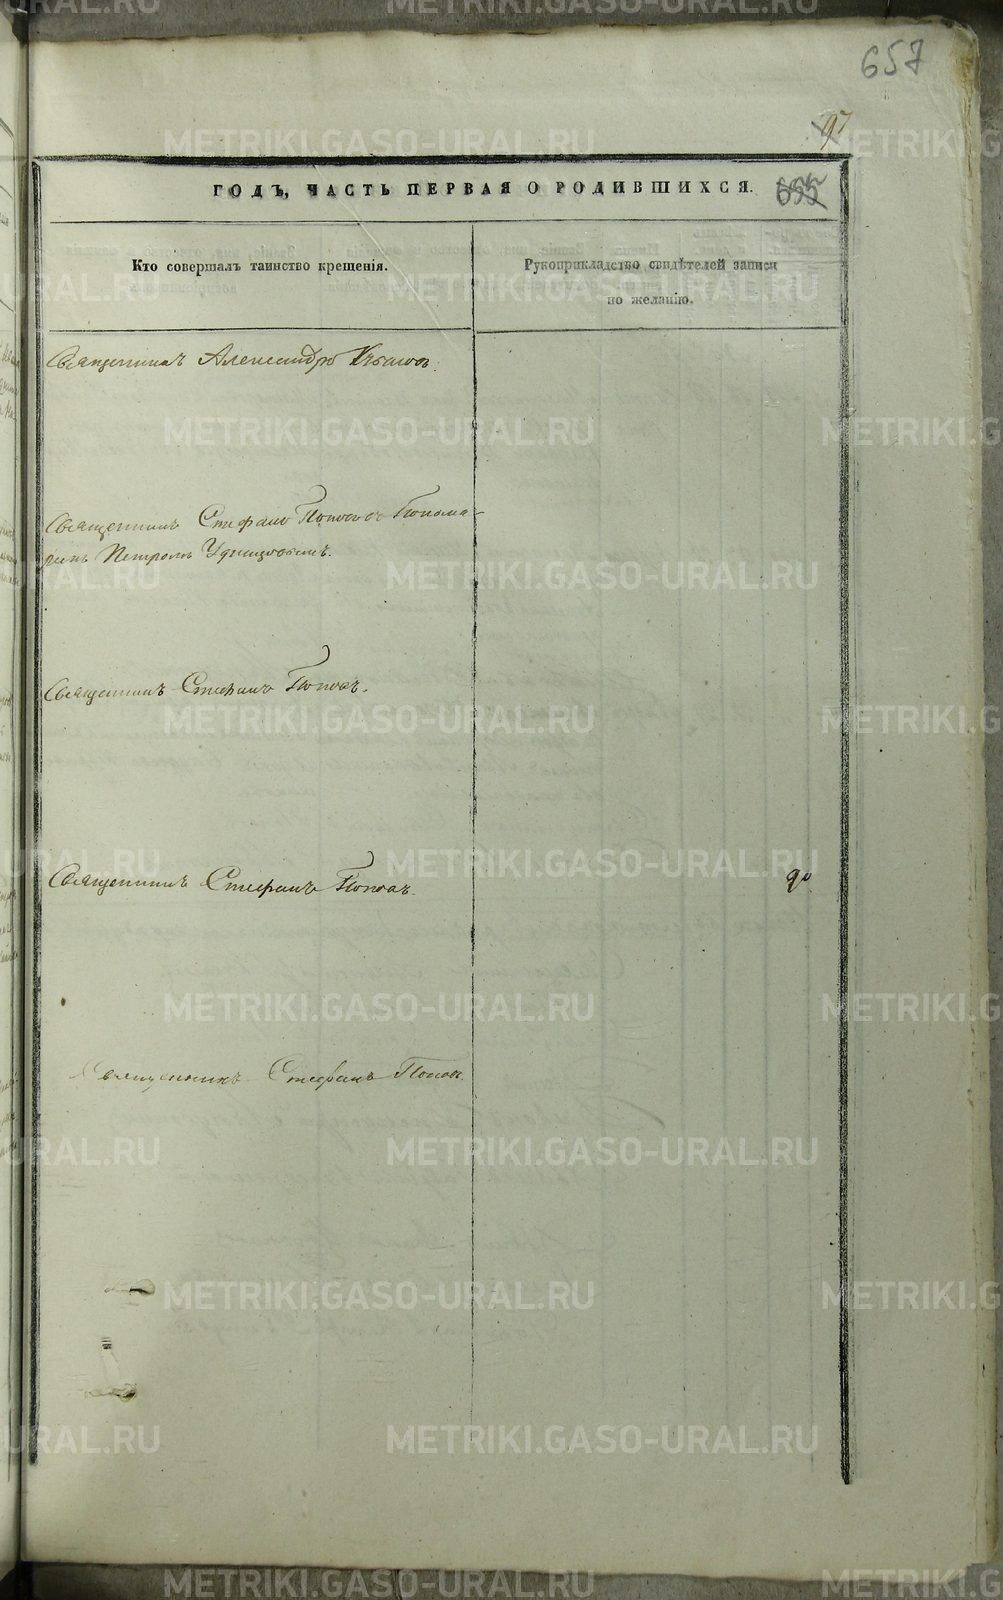 657
97
ГОДЪ, ЧАСТЬ ПЕРВАЯ О РОДИВШИХСЯ. 655
Кто совершалъ таинство крещенія.
Рукоприкладство свидѣтелей записи
по желанію.
Священникъ Александръ
Священникъ Стефанъ Поповъ съ Понома-
ремъ Петромъ
Священникъ Стефанъ Поповъ.
Священникъ Стефанъ Поповъ.
90
Священникъ Стефанъ Поповъ.
METRIKI.GASO-URAL.RU